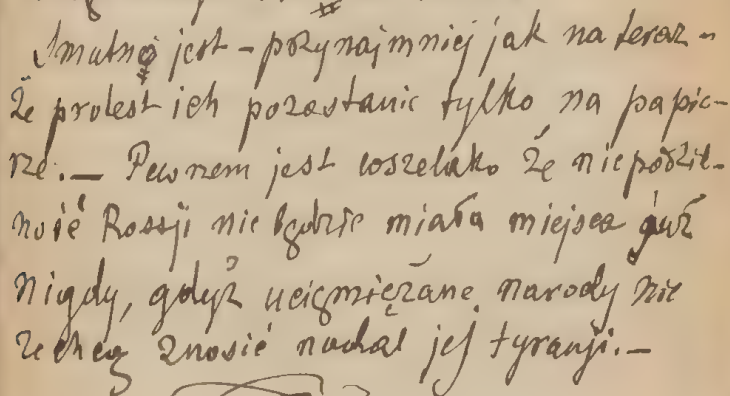 Smutnę jest – przynajmniej jak na teraz –
że protest ich pozostanie tylko na papie-
rze. – Pewnem jest wszelako że niepodziel-
ność Rossji nie będzie miała miejsca już
nigdy, gdyż uciemiężane narody nie
zechcą znosić nadal jej tyranji. –